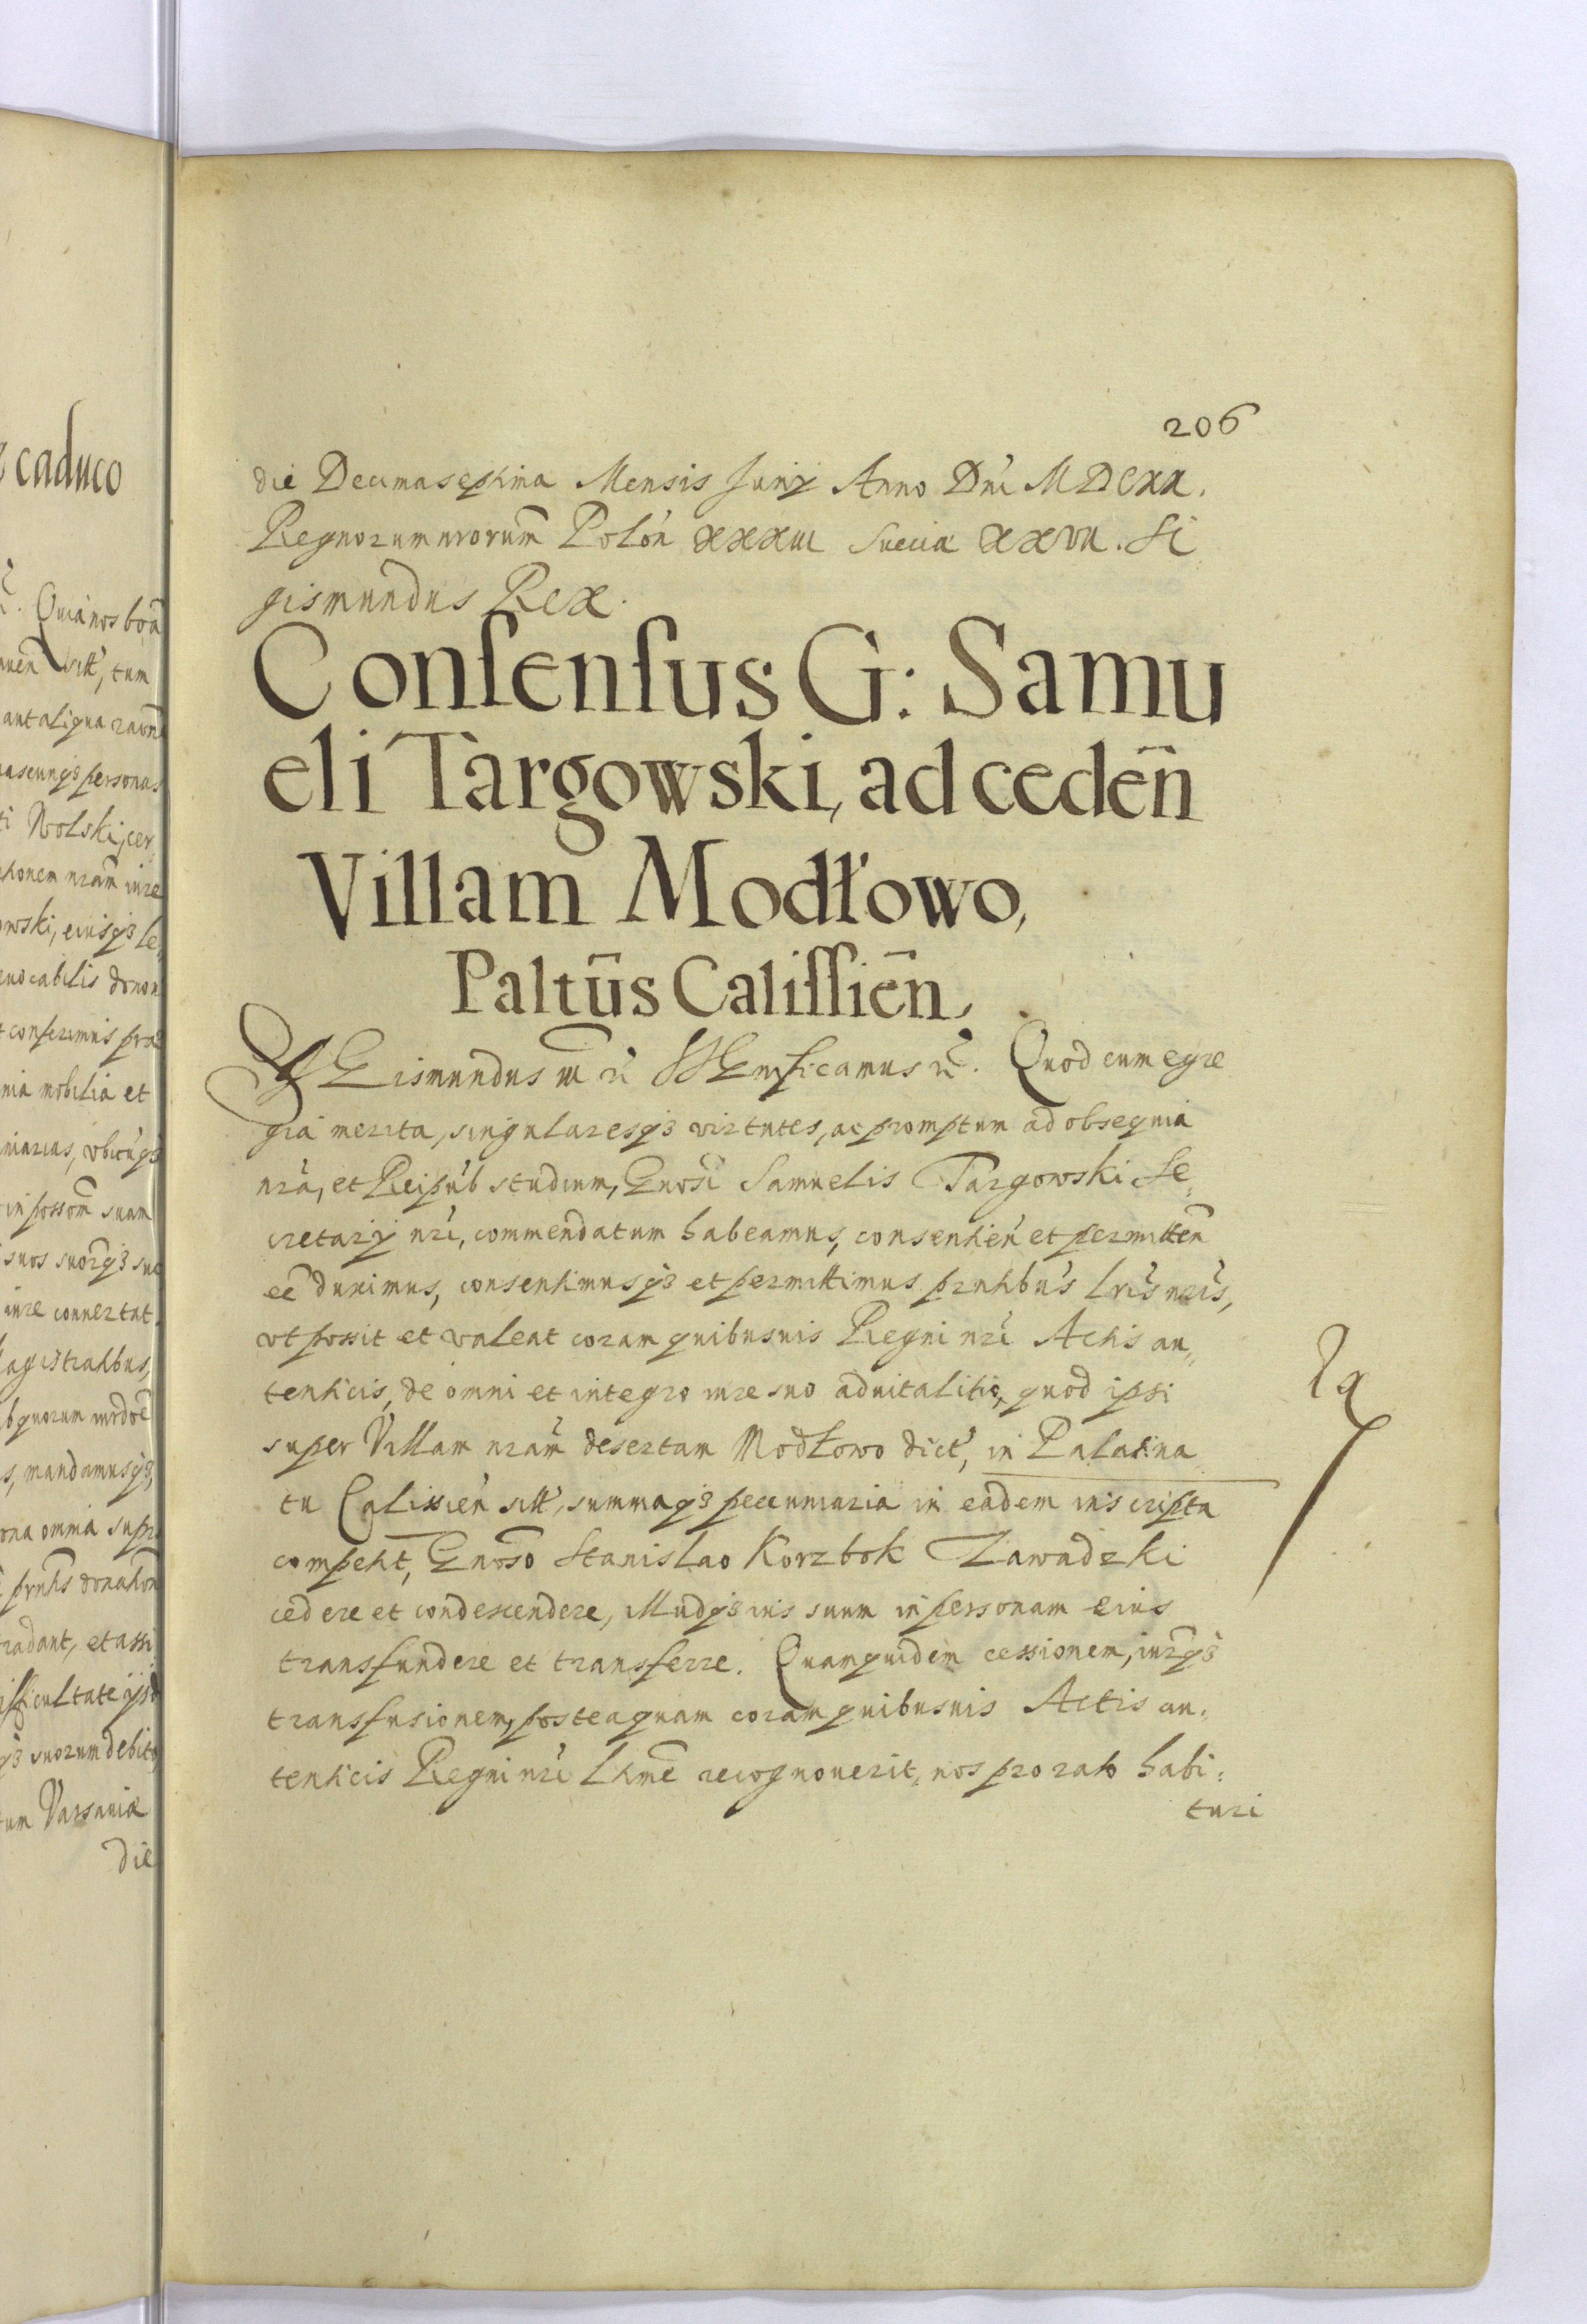 caduco
Quia nos bona
sitt, tum
aut aliqua raõne
personas
Wolski, cer
nram iure
owski, eiusqз le
uocabilis donon
conferimus pra
nia mobilia et
niarias, vbicuqз
in possom suam
suos suorqз suc
iure conuertat
agistratibus,
quorum
s, mandamusqз,
ona omnia supra
prntis donation
radant, et assi
ifficultate
qз suorum debito
um Varsauiæ
die
206
die Decimaseptima Mensis Junij Anno Dni MDCXX.
Regnorum nrorum Polon XXXIII Sueciæ XXVII. Si
gismundus Rex.
Consensus G: Samu
eli Targowski, ad ceden
Villam Modłowo,
Paltus Calissien.
SIGismundus III rc SIGnificamus rc. Quod cum egre
gia merita, singularesqз virtutes, ac promptum ad obsequia
nra, et Reipub studium, Gnosi Samuelis Targowski Se,
cretarij nri, commendatum habeamus, consentien et permitten
ee duximus, consentimusqз et permittimus prntibus lris nris,
vt possit et valeat coram quibusuis Regni nri Actis au,,
tenticis, de omni et integro iure suo aduitalitio, quod ipsi
super Villam nram desertam Modłowo dict, in Palatina
tu Calissien sitt, summaqз pecuniaria in eadem inscripta
competit, Gnoso Stanislao Korzbok Zawadzki
cedere et condescendere, illudqз ius suum in personam eius
transfundere et transferre. Quamquidem cessionem, iurqз
transfusionem, posteaquam coram quibusuis Actis au:
tenticis Regni nri ltme recognouerit, nos pro rato habi:
turi